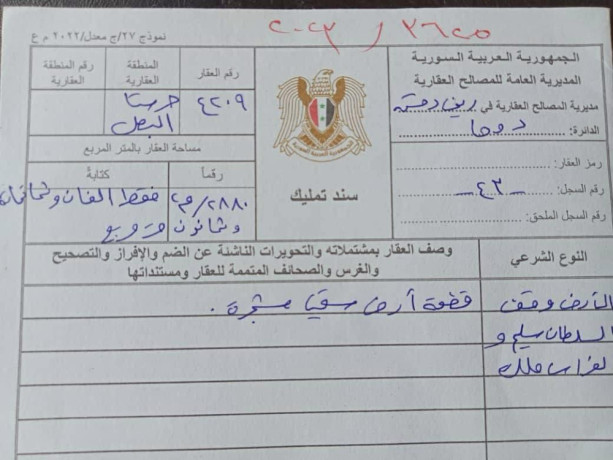 نموذج ٢٧/ج معدل/٢٠٢٢ م ع
٣٦٢٥ / ٢٠٢٣
الجمهورية العربية السورية
المديرية العامة للمصالح العقارية
مديرية المصالح العقارية في ريف دمشق
الدائرة: دوما
رمز العقار:
رقم السجل: ٤٣
رقم السجل الملحق:
سند تمليك
رقم العقار
المنطقة العقارية
رقم المنطقة العقارية
٤٢٠٩
حرستا
البصل
مساحة العقار بالمتر المربع
رقماً
كتابة
٢٨٨٠/م٢
فقط ألفان وثمانمائة
وثمانون متر مربع
النوع الشرعي
وصف العقار بمشتملاته والتحويرات الناشئة عن الضم والإفراز والتصحيح
والغرس والصحائف المتممة للعقار ومستنداتها
الأرض وقف
السلطان سليم و
الغراس ملك
قطعة أرض سقيا مشجرة.